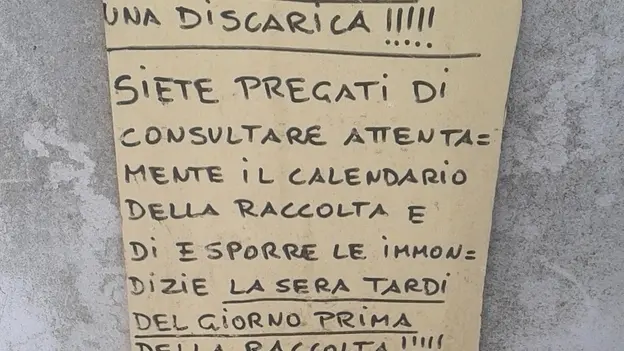 UNA DISCARICA !!!!!
SIETE PREGATI DI
CONSULTARE ATTENTA=
MENTE IL CALENDARIO
DELLA RACCOLTA E
DI ESPORRE LE IMMON=
DIZIE LA SERA TARDI
DEL GIORNO PRIMA
DELLA RACCOLTA !!!!!